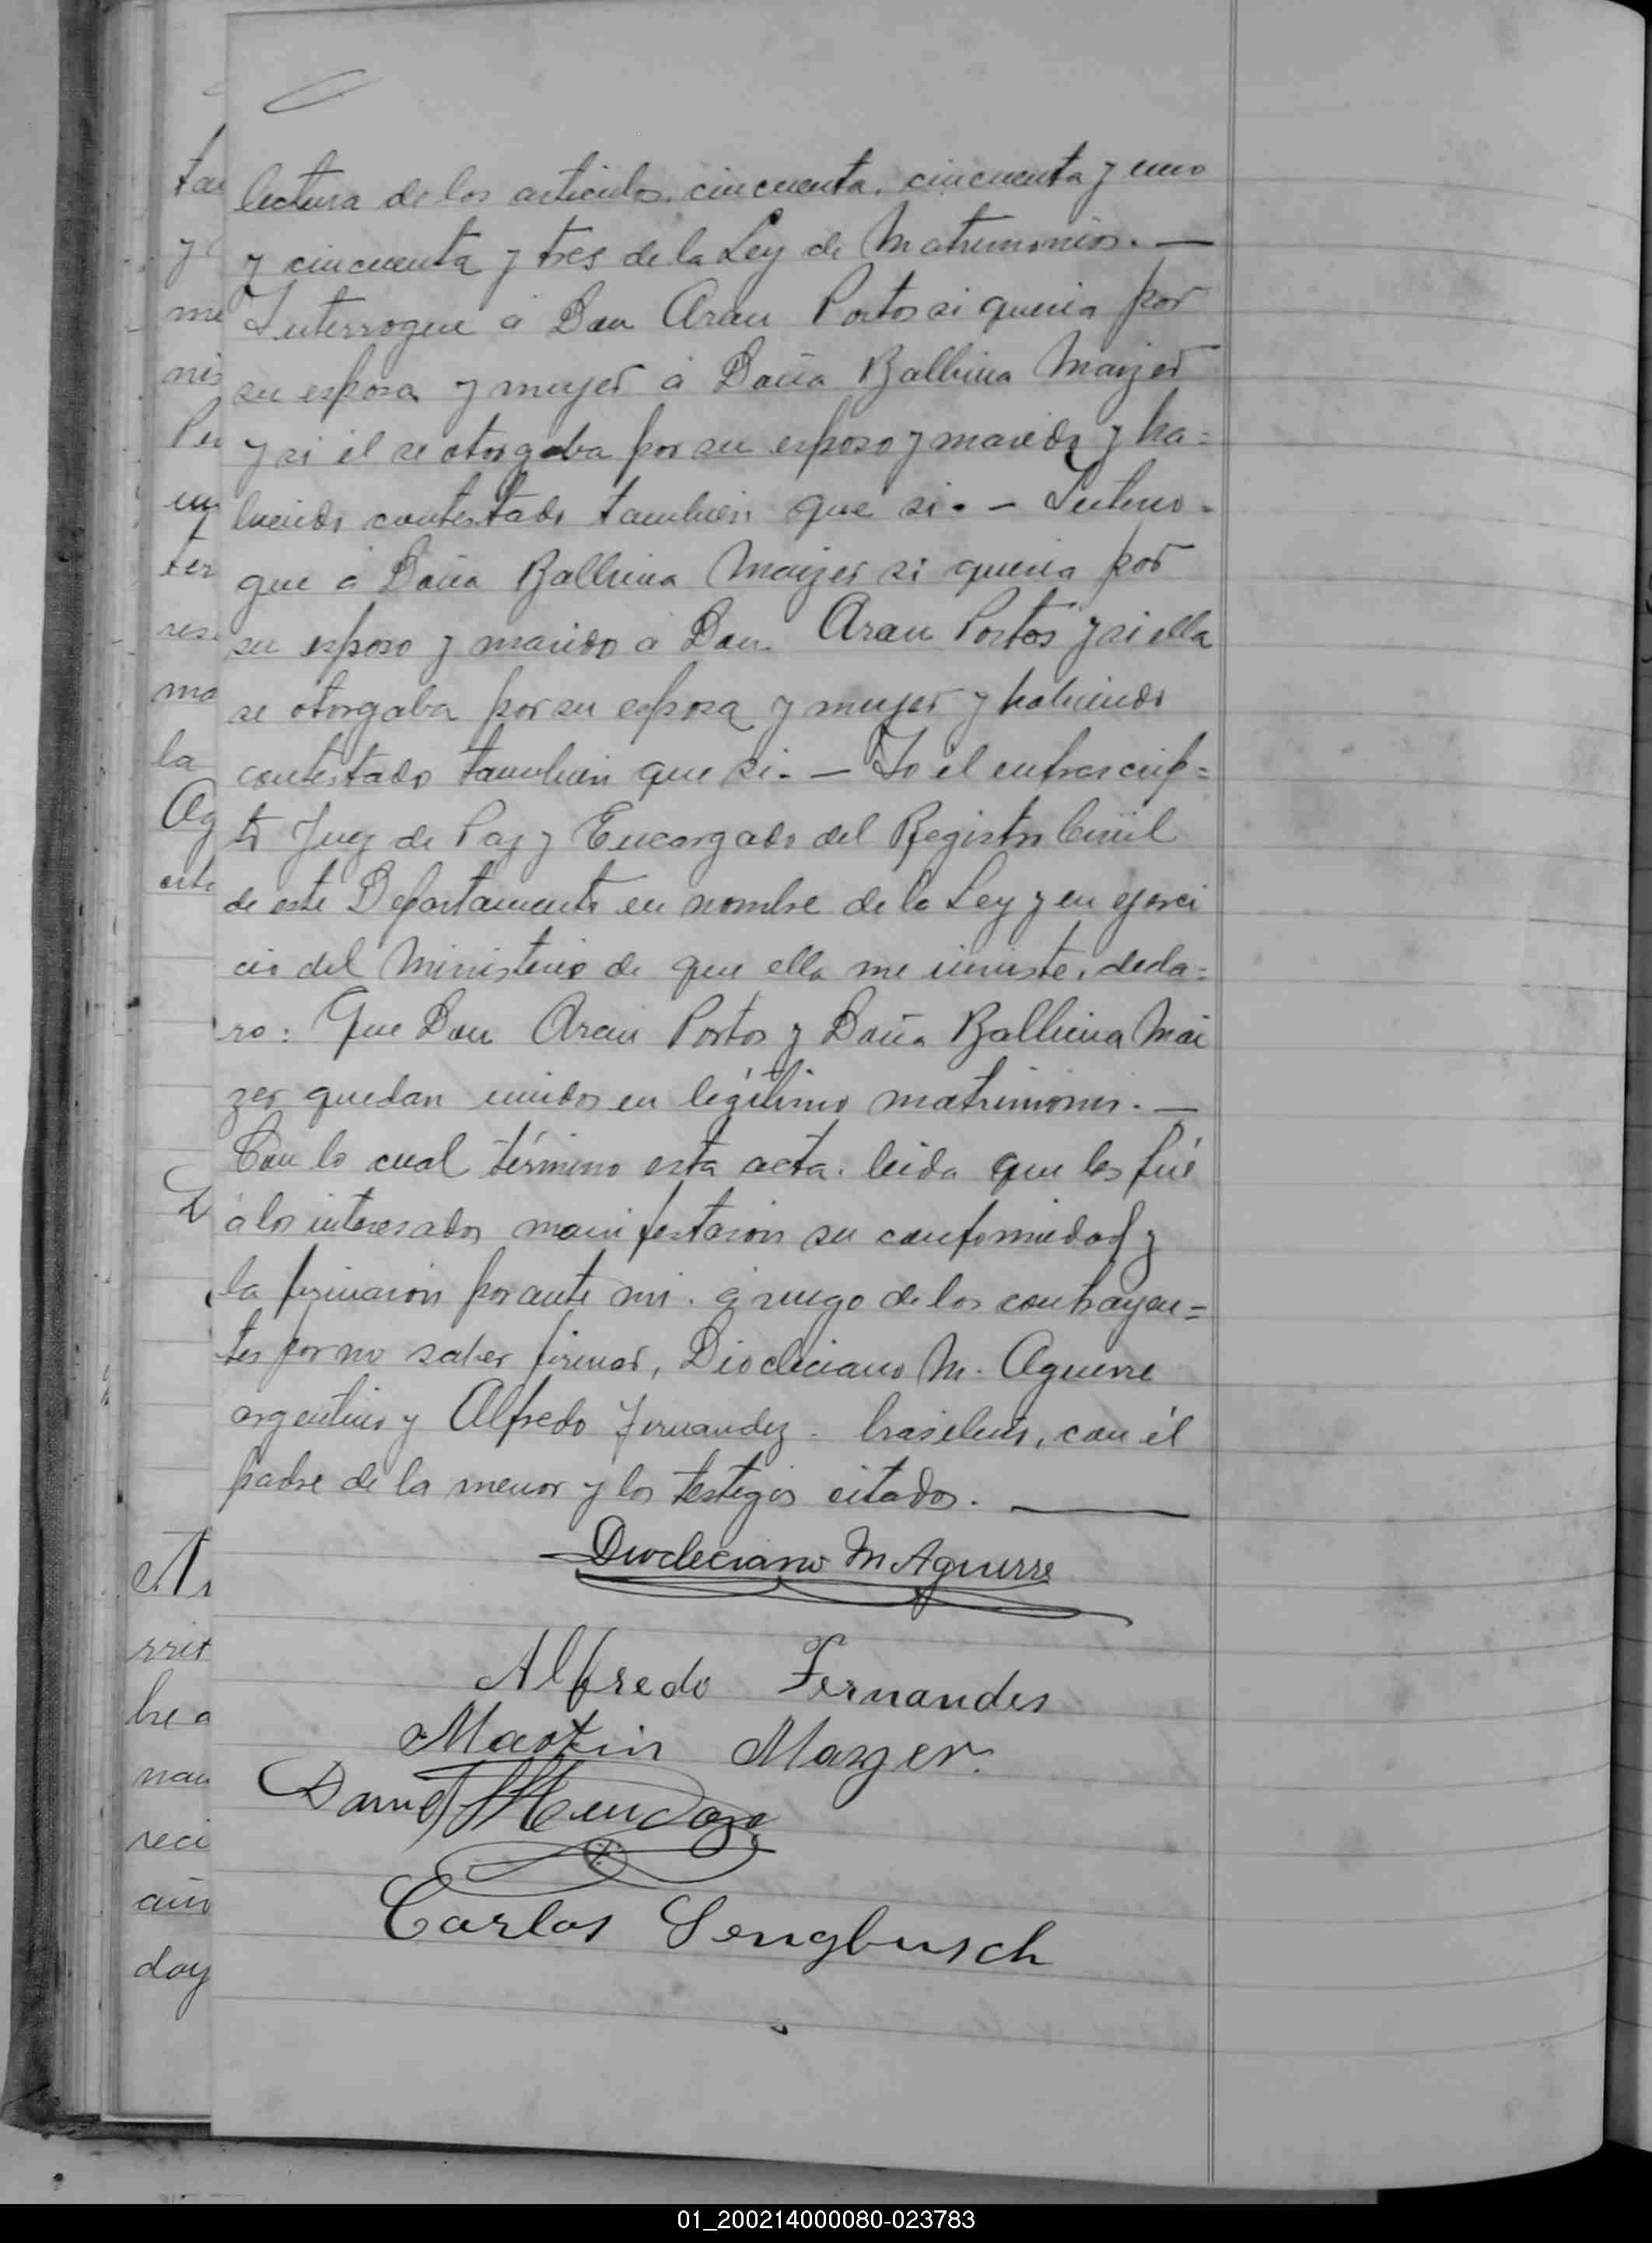 lectura de los articulos, cincuenta, cincuenta y uno
y cincuenta y tres de la Ley de Matrimonios. —
Interrogue á Don Aran Portos si queria por
su esposa y mujer á Doña Balbina Maizer
y si él se otorgaba por su esposo y marido y ha=
biendo contestado tambien que si. — Interro=
gue á Doña Balbina Maizer si queria por
su esposo y marido á Don Aran Portos y si ella
se otorgaba por su esposa y mujer y habiendo
contestado tambien que si. — Yo el enfrascrip=
to Juez de Paz y Encargado del Registro Civil
de este Departamento en nombre de la Ley y en ejerci
cio del Ministerio de que ella me inviste, decla=
ro: Que Don Aran Portos y Doña Balbina Mai
zer quedan unidos en legítimo matrimonio. —
Con lo cual término esta acta. leida que les fué
á los interesados manifestaron su conformidad y
la firmaron por ante mi. á ruego de los contrayen=
tes por no saber firmar, Diocleciano M. Aguirre
argentino y Alfredo Fernandez - brasilero, con él
padre de la menor y los testigos citados. —
Diocleciano M Aguirre
Alfredo Fernandes
Martin Mayer.
Daniel Mendoza
Carlos Sengbusch
tan
y
me
nis
Per
en
ter
res
mo
la
Ag
este
A
rrit
be a
nan
reci
año
doy
01_200214000080-023783